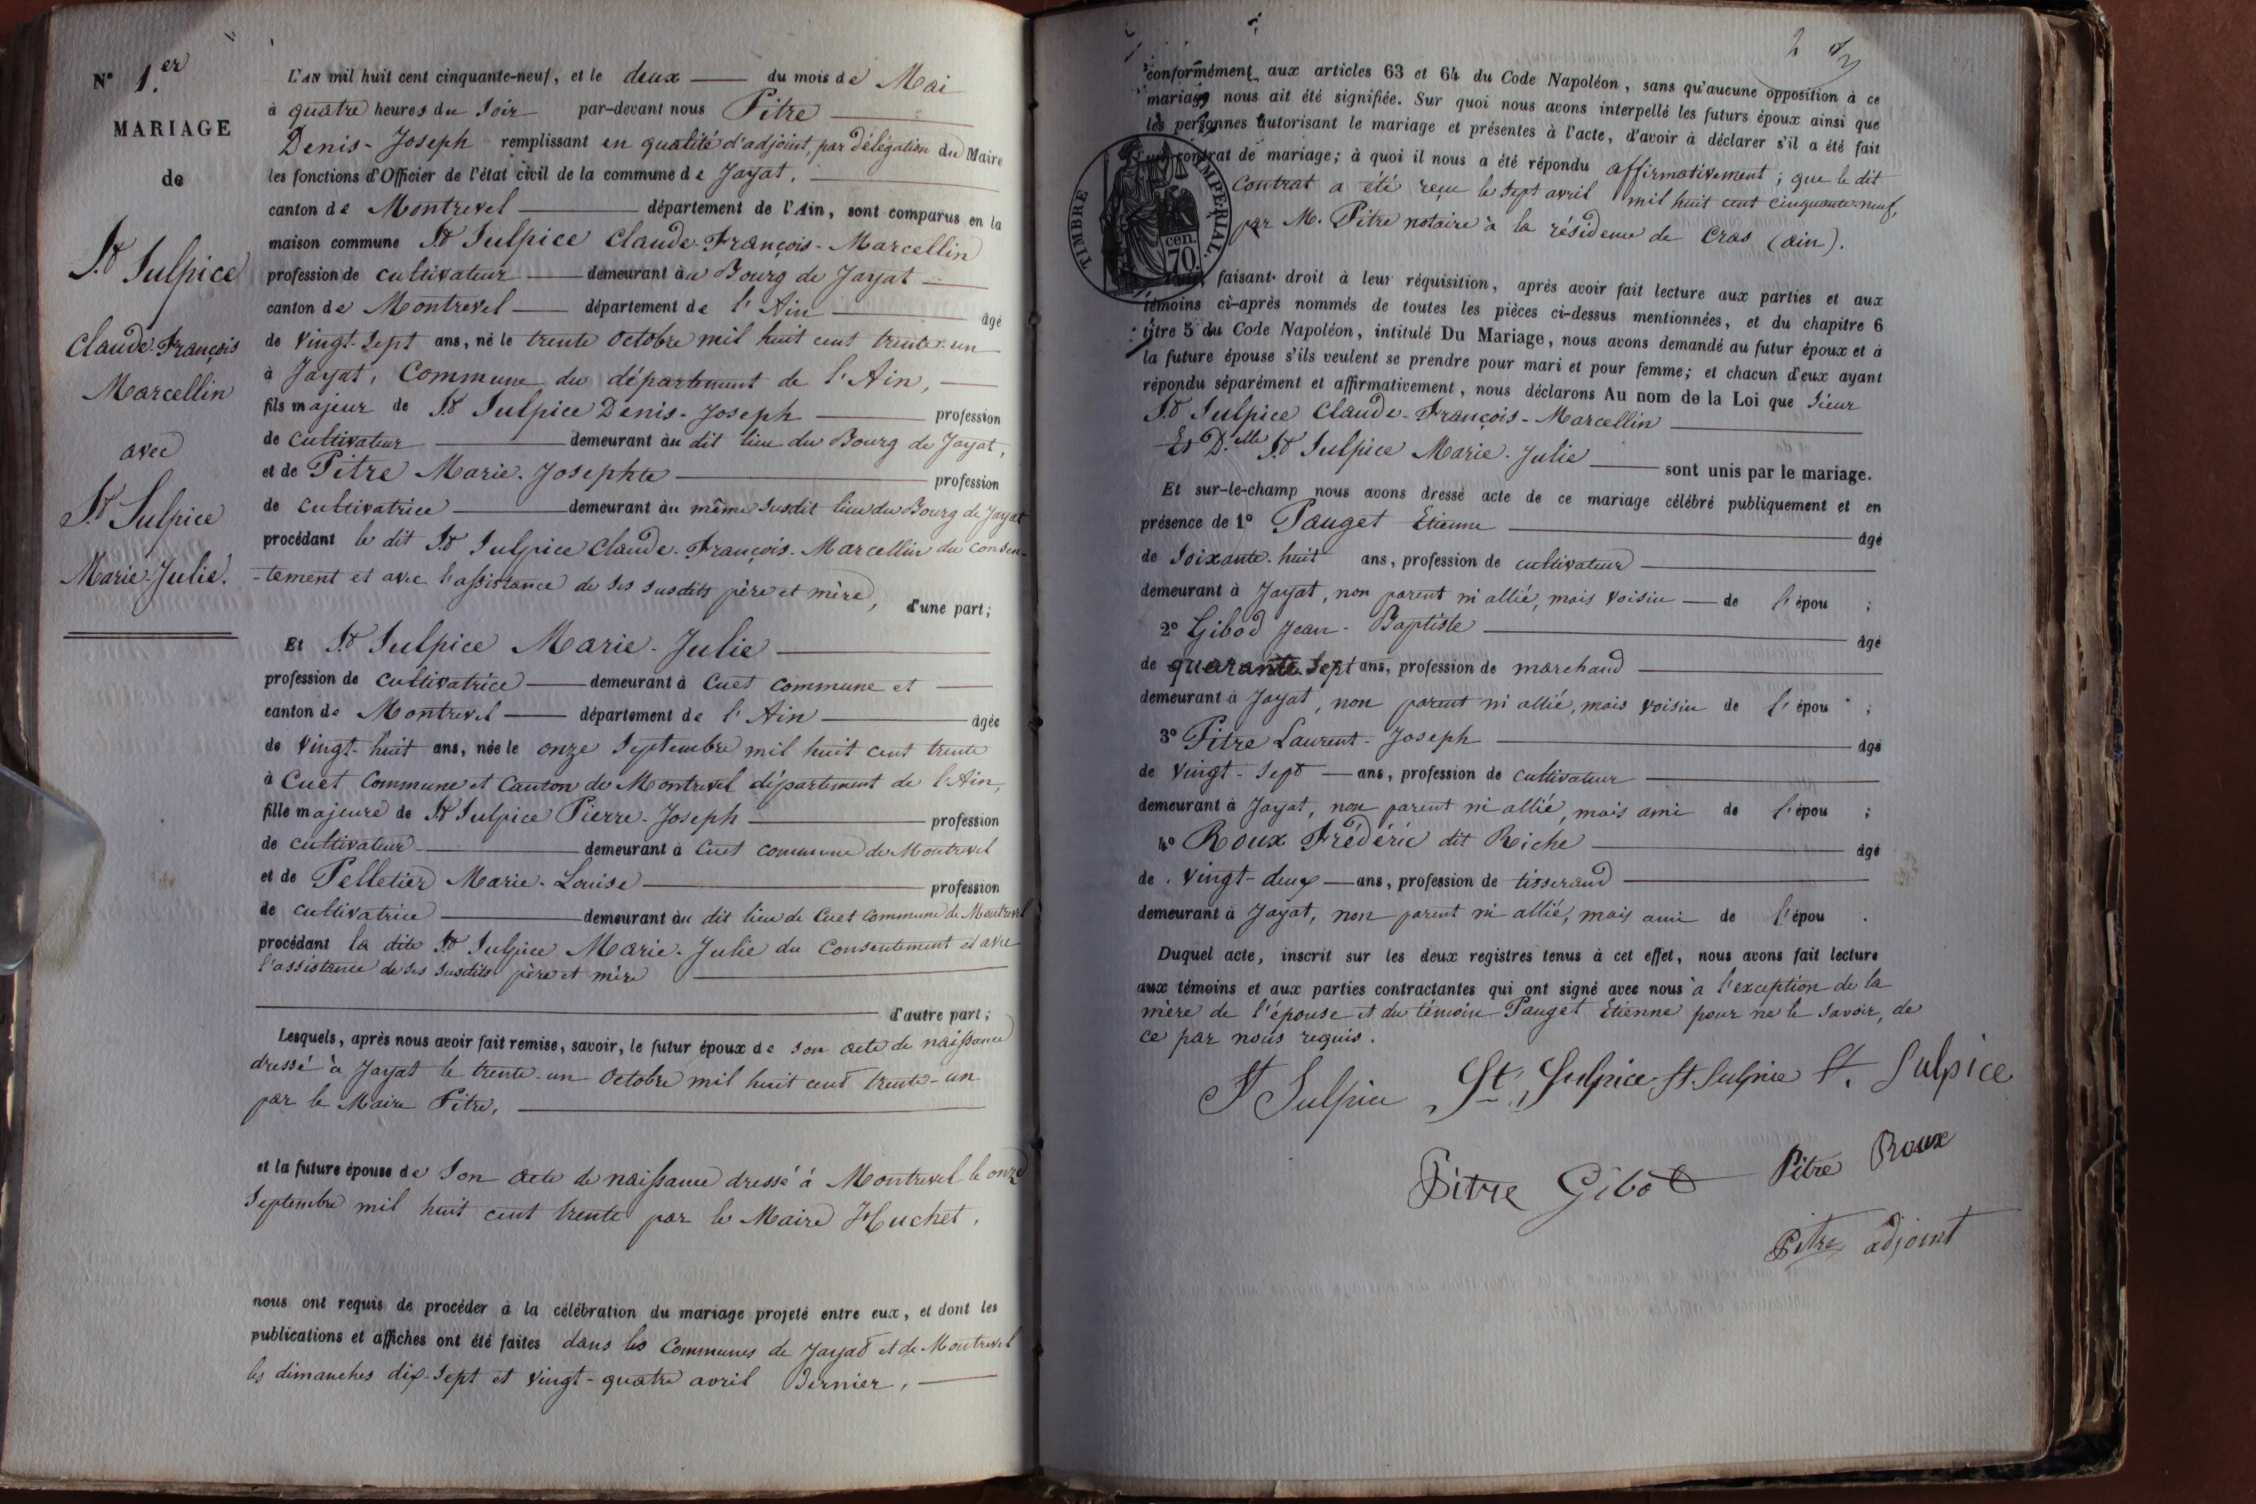 N° 1.er
MARIAGE
de
St Sulpice
Claude-François
Marcellin
avec
St Sulpice
Marie-Julie.
L'AN mil huit cent cinquante-neuf, et le deux du mois de Mai
à quatre heures du soir par-devant nous Pitre
Denis-Joseph remplissant en qualité d'adjoint, par délégation du Maire
les fonctions d'Officier de l'état civil de la commune de Jayat,
canton de Montrevel département de l'Ain, sont comparus en la
maison commune St Sulpice Claude-François-Marcellin
profession de cultivateur demeurant au Bourg de Jayat
canton de Montrevel département de l'Ain âgé
de vingt-sept ans, né le trente octobre mil huit cent trente-un
à Jayat, Commune du département de l'Ain,
fils majeur de St Sulpice Denis-Joseph profession
de cultivateur demeurant au dit lieu du Bourg de Jayat,
et de Pitre Marie-Josephte profession
de cultivatrice demeurant au même susdit lieu du Bourg de Jayat
procédant le dit St Sulpice Claude-François-Marcellin du consen-
-tement et avec l'assistance de ses susdits père et mère, d'une part;
Et St Sulpice Marie-Julie
profession de cultivatrice demeurant à Cuet commune et
canton de Montrevel département de l'Ain âgée
de vingt-huit ans, née le onze Septembre mil huit cent trente
à Cuet Commune et Canton de Montrevel département de l'Ain,
fille majeure de St Sulpice Pierre-Joseph profession
de cultivateur demeurant à Cuet commune de Montrevel
et de Pelletier Marie-Louise profession
de cultivatrice demeurant au dit lieu de Cuet commune de Montrevel
procédant la dite St Sulpice Marie-Julie du consentement et avec
l'assistance de ses susdits père et mère
d'autre part;
Lesquels, après nous avoir fait remise, savoir, le futur époux de son acte de naissance
dressé à Jayat le trente-un octobre mil huit cent trente-un
par le Maire Pitre,
et la future épouse de son acte de naissance dressé à Montrevel le onze
Septembre mil huit cent trente par le Maire Huchet,
nous ont requis de procéder à la célébration du mariage projeté entre eux, et dont les
publications et affiches ont été faites dans les Communes de Jayat et de Montrevel
les dimanches dix-sept et vingt-quatre avril dernier,
2
conformément aux articles 63 et 64 du Code Napoléon, sans qu'aucune opposition à ce
mariage nous ait été signifiée. Sur quoi nous avons interpellé les futurs époux ainsi que
les personnes autorisant le mariage et présentes à l'acte, d'avoir à déclarer s'il a été fait
un contrat de mariage; à quoi il nous a été répondu affirmativement; que le dit
contrat a été reçu le sept avril mil huit cent cinquante-neuf,
par M. Pitre notaire à la résidence de Cras (ain).
TIMBRE IMPÉRIAL.
70 cen.
faisant droit à leur réquisition, après avoir fait lecture aux parties et aux
témoins ci-après nommés de toutes les pièces ci-dessus mentionnées, et du chapitre 6
titre 5 du Code Napoléon, intitulé Du Mariage, nous avons demandé au futur époux et à
la future épouse s'ils veulent se prendre pour mari et pour femme; et chacun d'eux ayant
répondu séparément et affirmativement, nous déclarons Au nom de la Loi que sieur
St Sulpice Claude-François-Marcellin
Et D.elle St Sulpice Marie-Julie sont unis par le mariage.
Et sur-le-champ nous avons dressé acte de ce mariage célébré publiquement et en
présence de 1° Pauget Etienne âgé
de soixante-huit ans, profession de cultivateur
demeurant à Jayat, non parent ni allié, mais voisin de l'épou ;
2° Gibod Jean-Baptiste âgé
de quarante sept ans, profession de marchand
demeurant à Jayat, non parent ni allié, mais voisin de l'épou ;
3° Pitre Laurent-Joseph âgé
de vingt-sept ans, profession de cultivateur
demeurant à Jayat, non parent ni allié, mais ami de l'épou ;
4° Roux Frédéric dit Riche âgé
de vingt-deux ans, profession de tisserand
demeurant à Jayat, non parent ni allié, mais ami de l'épou .
Duquel acte, inscrit sur les deux registres tenus à cet effet, nous avons fait lecture
aux témoins et aux parties contractantes qui ont signé avec nous à l'exception de la
mère de l'épouse et du témoin Pauget Etienne pour ne le savoir, de
ce par nous requis.
St Sulpice St. Sulpice St Sulpice St. Sulpice
Pitre Gibod Pitre Roux
Pitre adjoint